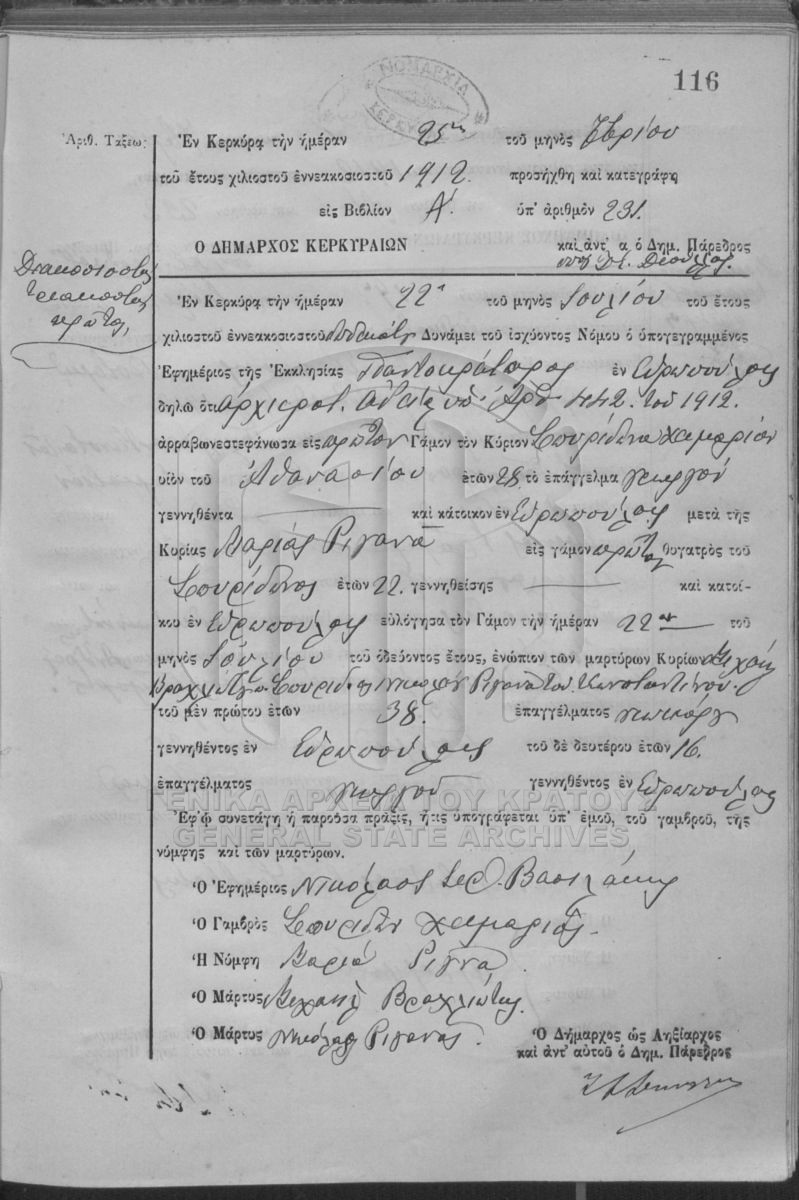 116
ΝΟΜΑΡΧΙΑ
ΚΕΡΚΥ
Ἀριθ. Τάξεως
Ἐν Κερκύρᾳ τὴν ἡμέραν 25ην τοῦ μηνὸς 7βρίου
τοῦ ἔτους χιλιοστοῦ ἐννεακοσιοστοῦ 1912 προσήχθη καὶ κατεγράφη
εἰς Βιβλίον Α' ὑπ' ἀριθμὸν 231.
Ο ΔΗΜΑΡΧΟΣ ΚΕΡΚΥΡΑΙΩΝ καὶ ἀντ' α ὁ Δημ. Πάρεδρος
Διακοσιοστὴ
τριακοστὴ
πρώτη
Ἐν Κερκύρᾳ τὴν ἡμέραν 22α τοῦ μηνὸς Ἰουλίου τοῦ ἔτους
χιλιοστοῦ ἐννεακοσιοστοῦ δωδεκάτου Δυνάμει τοῦ ἰσχύοντος Νόμου ὁ ὑπογεγραμμένος
Ἐφημέριος τῆς Ἐκκλησίας Παντοκράτορος ἐν Εὐρωπούλοις
δηλῶ ὅτι ἀρχιερατ. ἀδείᾳ ὑπ' ἀρθ 442. τοῦ 1912.
ἀρραβωνεστεφάνωσα εἰς πρῶτον Γάμον τὸν Κύριον Σπυρίδωνα Χειμαριὸν
υἱὸν τοῦ Ἀθανασίου ἐτῶν 28 τὸ ἐπάγγελμα γεωργοῦ
γεννηθέντα καὶ κάτοικον ἐν Εὐρωπούλοις μετὰ τῆς
Κυρίας Μαρίας Ριγανᾶ εἰς γάμον πρῶτον θυγατρὸς τοῦ
Σπυρίδωνος ἐτῶν 22. γεννηθείσης καὶ κατοί-
κου ἐν Εὐρωπούλοις εὐλόγησα τὸν Γάμον τὴν ἡμέραν 22αν τοῦ
μηνὸς Ἰουλίου τοῦ ὁδεύοντος ἔτους, ἐνώπιον τῶν μαρτύρων Κυρίων Μιχαὴλ
Βραχλιώτη Σπυρίδ. Νικολάου Ριγανᾶ τοῦ Κωνσταντίνου.
τοῦ μὲν πρώτου ἐτῶν 38. ἐπαγγέλματος γεωργοῦ
γεννηθέντος ἐν Εὐρωπούλοις τοῦ δὲ δευτέρου ἐτῶν 16.
ἐπαγγέλματος γεωργοῦ γεννηθέντος ἐν Εὐρωπούλοις
ΓΕΝΙΚΑ ΑΡΧΕΙΑ ΤΟΥ ΚΡΑΤΟΥΣ
GENERAL STATE ARCHIVES
Ἐφ' ᾧ συνετάγη ἡ παροῦσα πρᾶξις, ἥτις ὑπογράφεται ὑπ' ἐμοῦ, τοῦ γαμβροῦ, τῆς
νύμφης καὶ τῶν μαρτύρων.
Ὁ Ἐφημέριος Νικόλαος Ιερ. Βασιλάκης
Ὁ Γαμβρὸς Σπυρίδων Χειμαριός.
Ἡ Νύμφη Μαρία Ριγανᾶ
Ὁ Μάρτυς Μιχαὴλ Βραχλιώτης.
Ὁ Μάρτυς Νικόλαος Ριγανᾶς.
Ὁ Δήμαρχος ὡς Ληξίαρχος
καὶ ἀντ' αὐτοῦ ὁ Δημ. Πάρεδρος